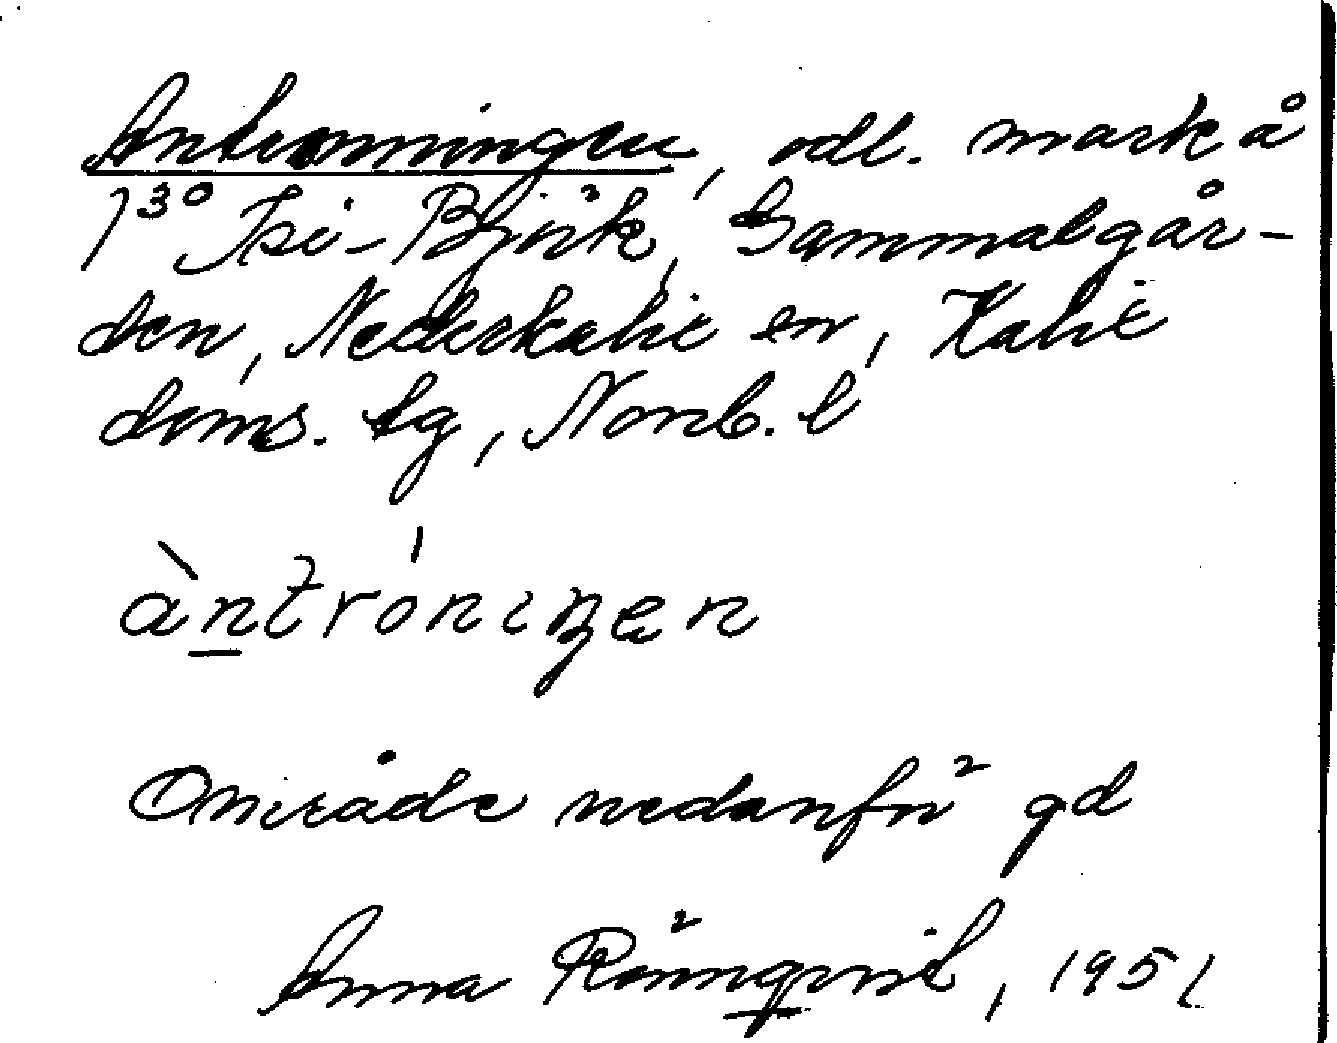 Antronningen, odl. mark å
1³⁰ Isi-Björk, Gammalgår-
den, Nederkalix en, Kalix
doms. lg, Norrb. l
àntróningen
Område nedanför gd
Anna Rönnqvist, 1951